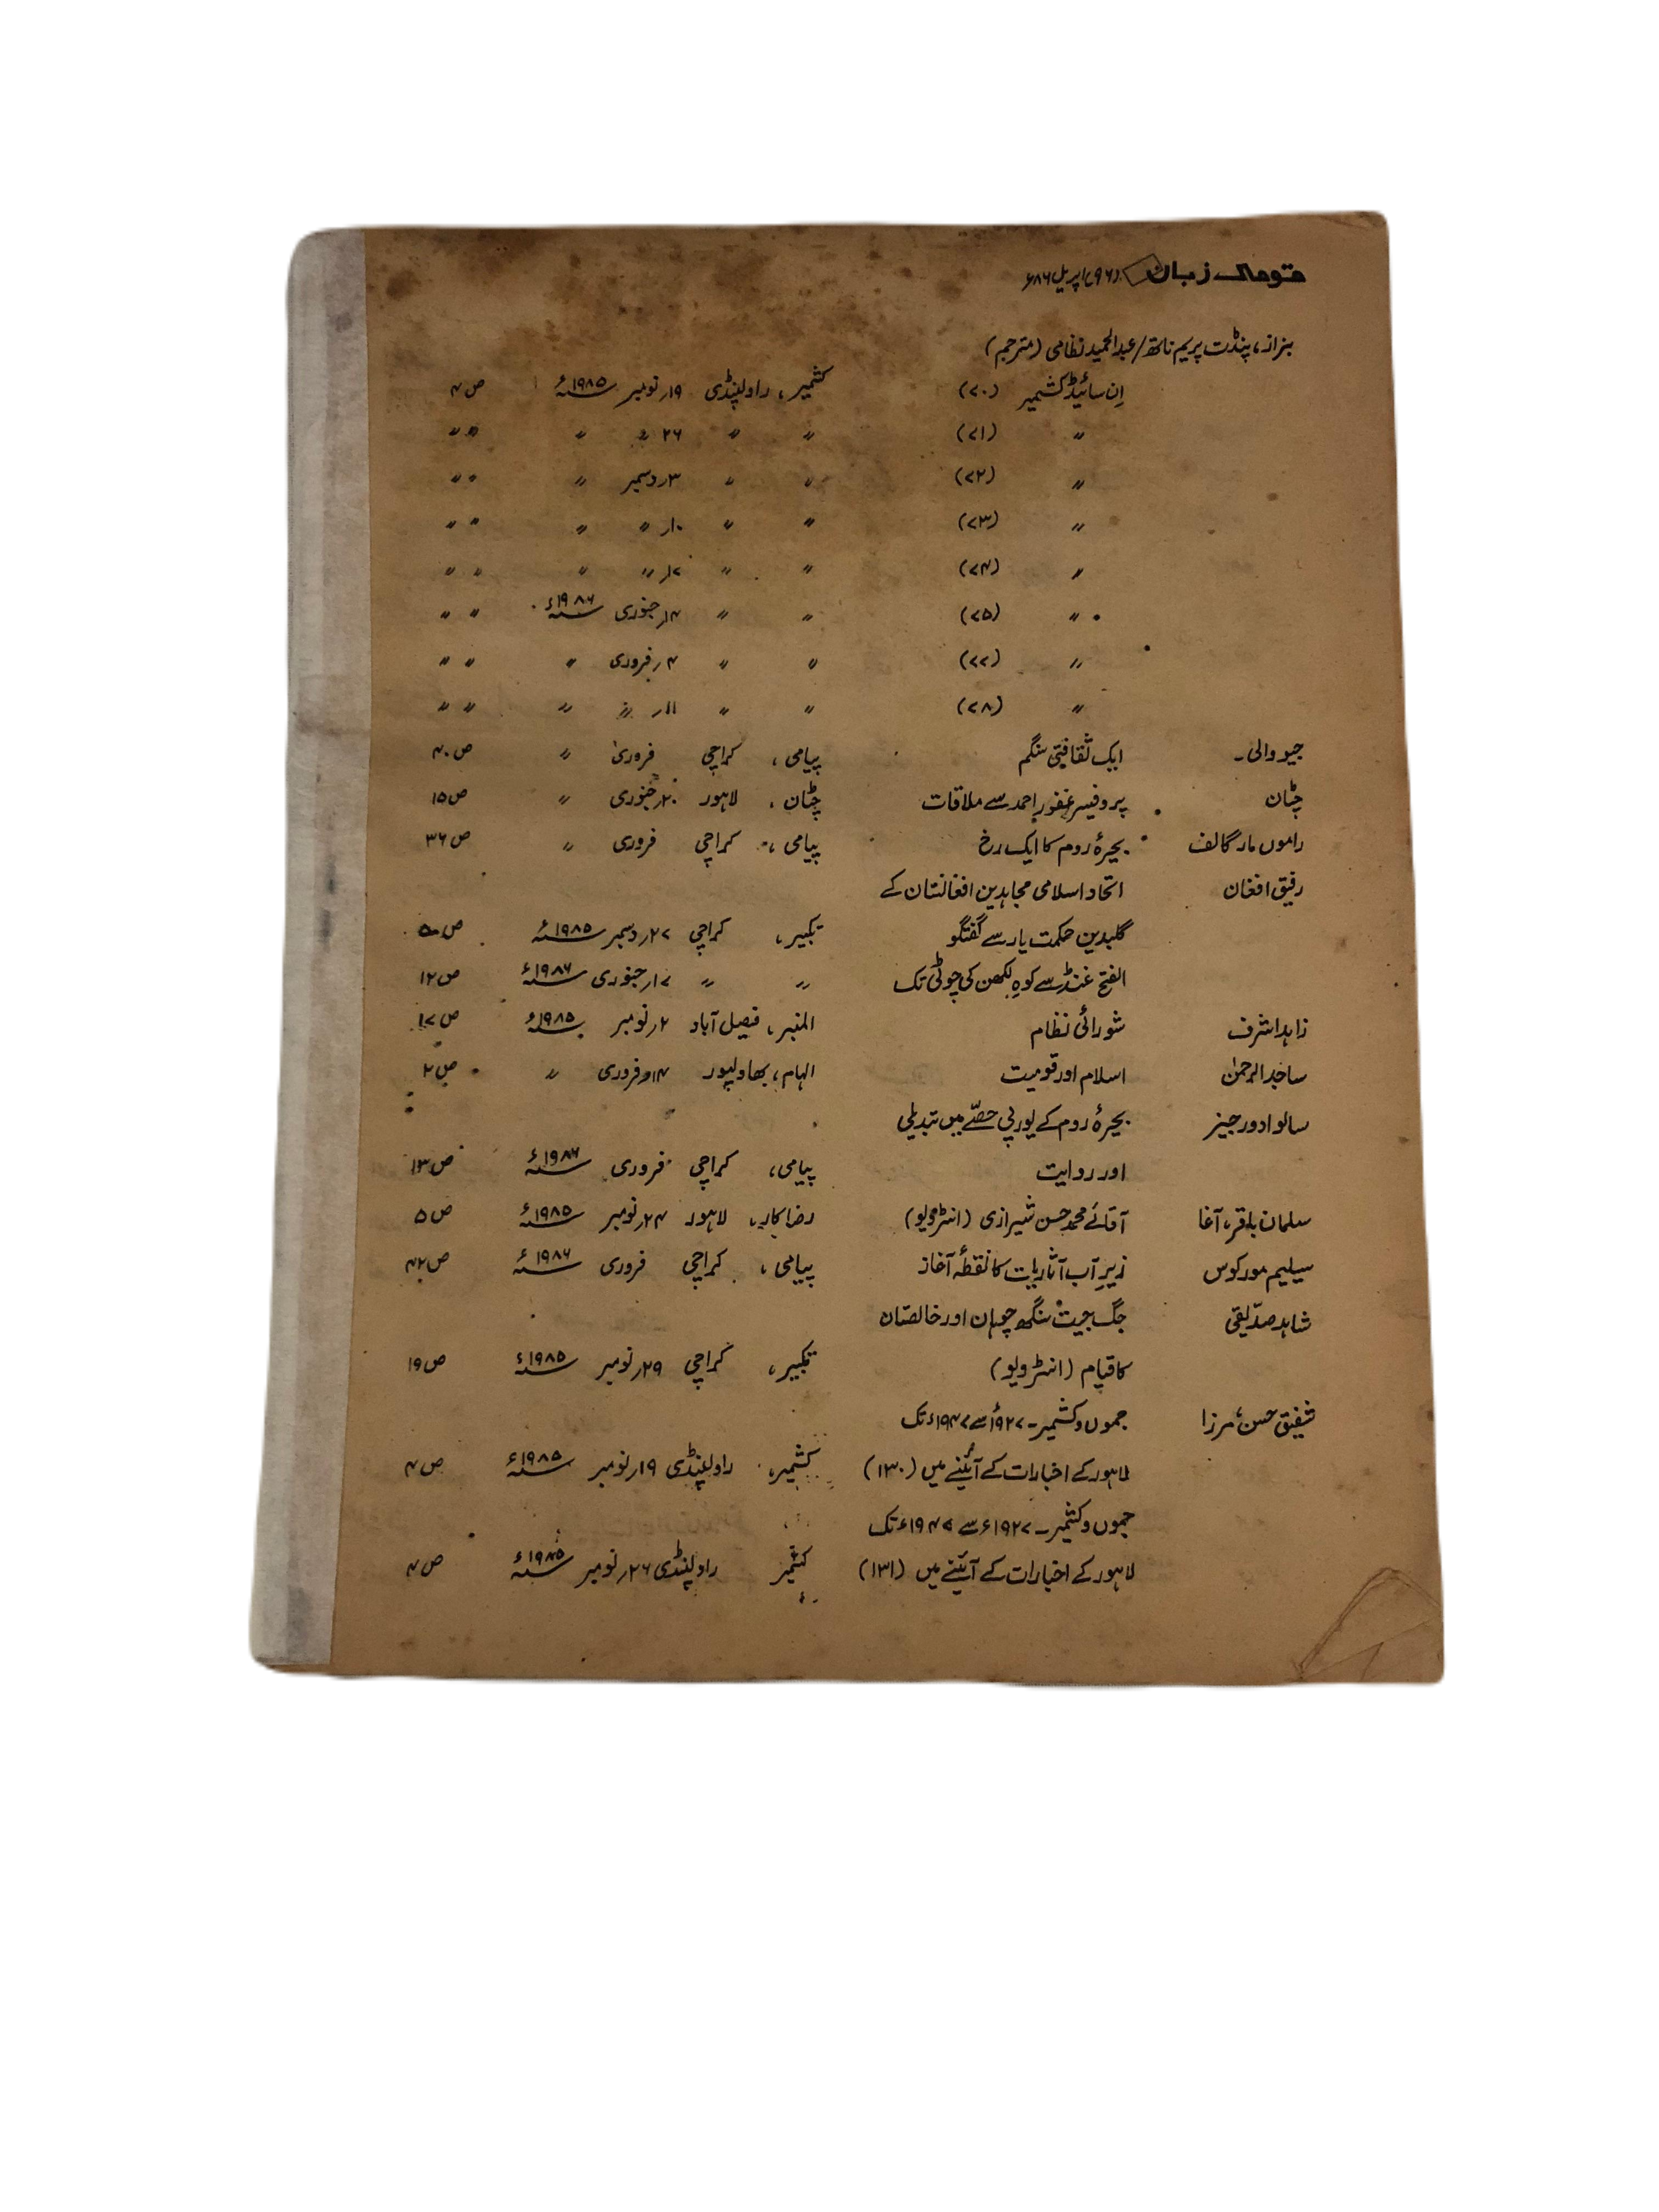 قومی زبان (۹۶) اپریل ۸۶ء
بزاز، پنڈت پریم ناتھ/عبدالحمید نظامی (مترجم)
اِن سائیڈ کشمیر (۷۰) کشمیر، راولپنڈی ۱۹؍نومبر ۱۹۸۵ء ص۴
〃 (۷۱) 〃 〃 ۲۶ 〃 〃 〃 〃
〃 (۷۲) 〃 〃 ۳؍دسمبر 〃 〃 〃
〃 (۷۳) 〃 〃 ۱۰؍ 〃 〃 〃 〃
〃 (۷۴) 〃 〃 ۱۷؍ 〃 〃 〃 〃
〃 (۷۵) 〃 〃 ۱۴؍جنوری ۱۹۸۶ء 〃 〃
〃 (۷۷) 〃 〃 ۴؍فروری 〃 〃 〃
〃 (۷۸) 〃 〃 ۱۱؍ 〃 〃 〃 〃
جیووالی۔ ایک ثقافتی سنگم پیامی، کراچی فروری 〃 ص۴۰
چٹان پروفیسر غفور احمد سے ملاقات چٹان، لاہور ۲۰؍جنوری 〃 ص۱۵
راموں مارگالف بحیرۂ روم کا ایک رخ پیامی، کراچی فروری 〃 ص۳۶
رفیق افغان اتحاد اسلامی مجاہدین افغانستان کے
گلبدین حکمت یار سے گفتگو تکبیر، کراچی ۲۷؍دسمبر ۱۹۸۵ء
الفتح غنڈ سے کوہِ لکھن کی چوٹی تک 〃 〃 ۱۷؍جنوری ۱۹۸۶ء ص۱۲
زاہد اشرف شورائی نظام المنبر، فیصل آباد ۲؍نومبر ۱۹۸۵ء ص۱۷
ساجد الرحمٰن اسلام اور قومیت الہام، بھاولپور ۱۴؍فروری 〃 ص۲
سالوادورجینر بحیرۂ روم کے یورپی حصّے میں تبدیلی
اور روایت پیامی، کراچی فروری ۱۹۸۶ء ص۱۳
سلمان باقر، آغا آقائے محمد حسن شیرازی (انٹرویو) رضاکار، لاہور ۲۴؍نومبر ۱۹۸۵ء ص۵
سیلیم مورکوس زیرِ آب آثاریات کا نقطۂ آغاز پیامی، کراچی فروری ۱۹۸۶ء ص۴۲
شاہد صدّیقی جگ جیت سنگھ چوہان اور خالصتان
کا قیام (انٹرویو) تکبیر، کراچی ۲۹؍نومبر ۱۹۸۵ء ص۱۹
شفیق حسن، مرزا جموں و کشمیر۔ ۱۹۲۷ء سے ۱۹۴۷ء تک
لاہور کے اخبارات کے آئینے میں (۱۳۰) کشمیر، راولپنڈی ۱۹؍نومبر ۱۹۸۵ء ص۴
جموں و کشمیر۔ ۱۹۲۷ء سے ۱۹۴۷ء تک
لاہور کے اخبارات کے آئینے میں (۱۳۱) کشمیر راولپنڈی ۲۶؍نومبر ۱۹۸۵ء ص۴